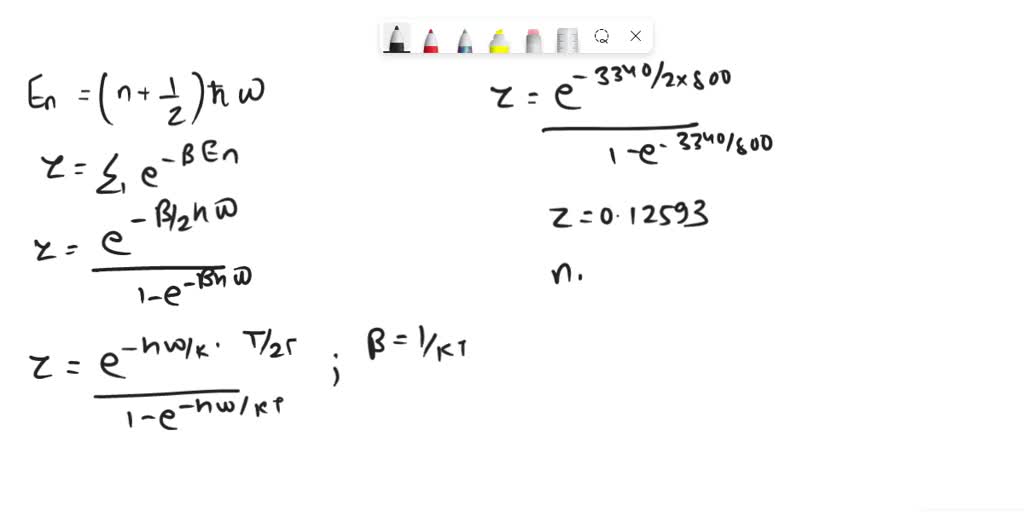 En = (n + 1/2) ħ ω
Z = Σ, e^-βEn
Z = e^-β/2 ħω / 1-e^-βħω
Z = e^-ħω/k · T/2T / 1-e^-ħω/kT ; β = 1/kT
Z = e^-3340/2×800 / 1-e^-3340/800
Z = 0.12593
n.